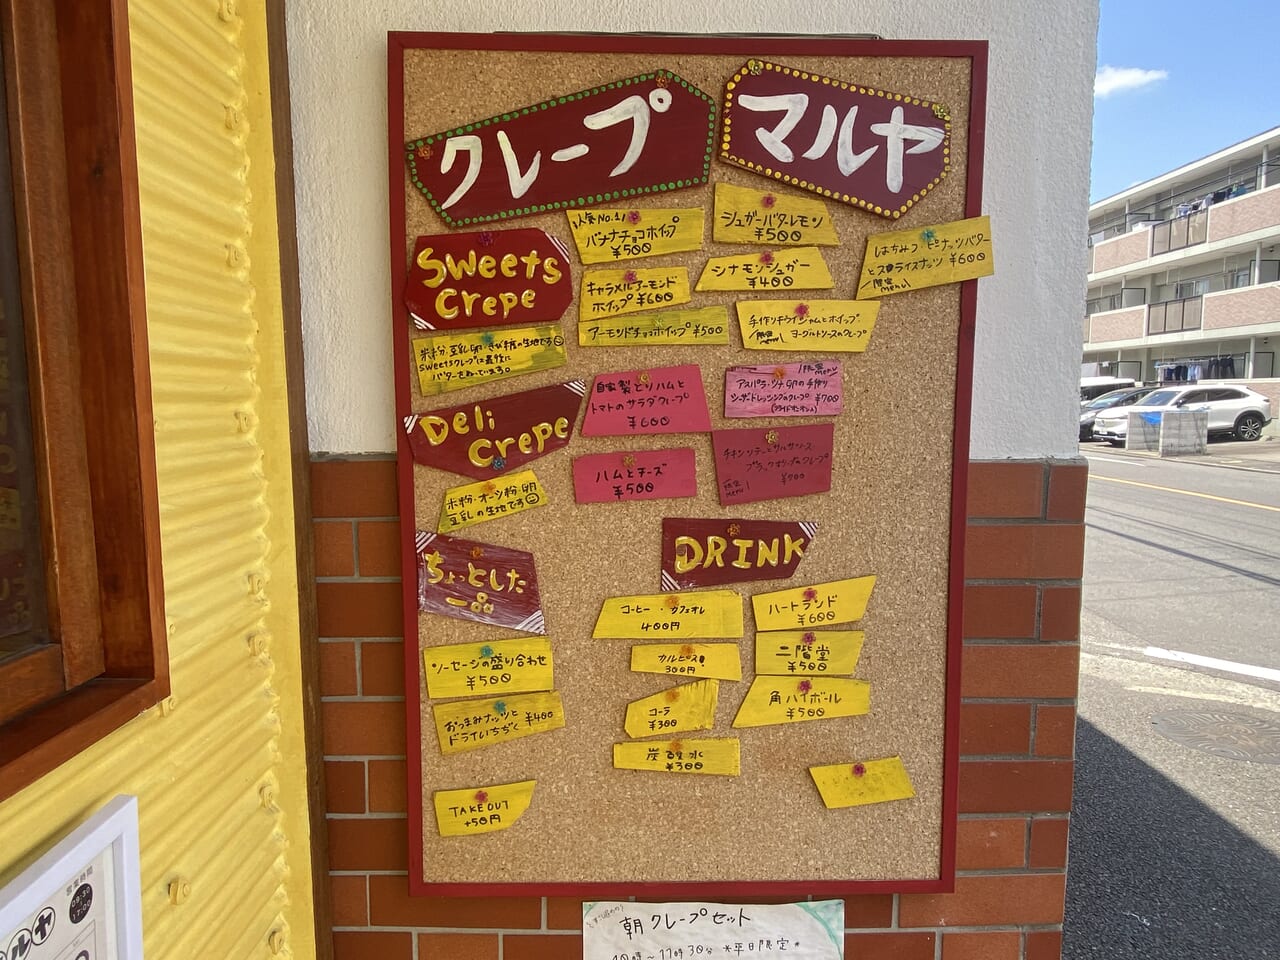 クレープ
マルヤ
Sweets
Crepe
米粉・豆乳・卵・きび糖の生地です
Sweetsクレープは最後に
バターをぬっています。
人気No.1!
バナナチョコホイップ
¥500
シュガーバターレモン
¥500
はちみつ・ピーナッツバター
とスライスナッツ ¥600
限定
menu
キャラメルアーモンド
ホイップ ¥600
シナモンシュガー
¥400
アーモンドチョコホイップ ¥500
手作りキウイジャムとホイップ
限定
menu
ヨーグルトソースのクレープ
Deli
Crepe
米粉・オーツ粉・卵
豆乳の生地です
自家製とりハムと
トマトのサラダクレープ
¥600
限定
menu
アスパラ・ツナ・卵の手作り
シーザードレッシングのクレープ ¥700
(フライドオニオン入)
ハムとチーズ
¥500
チキンソテーとサルサソース
ブラックオリーブのクレープ
限定
menu
¥700
ちょっとした
一品
ソーセージの盛り合わせ
¥500
おつまみナッツと
ドライいちぢく ¥400
TAKEOUT
+50円
DRINK
コーヒー・カフェオレ
400円
ハートランド
¥600
カルピス
300円
二階堂
¥500
コーラ
¥300
角ハイボール
¥500
炭酸水
¥300
朝クレープセット
10時〜11時30分 *平日限定*
営業時間
09:30
17:00
ルヤ